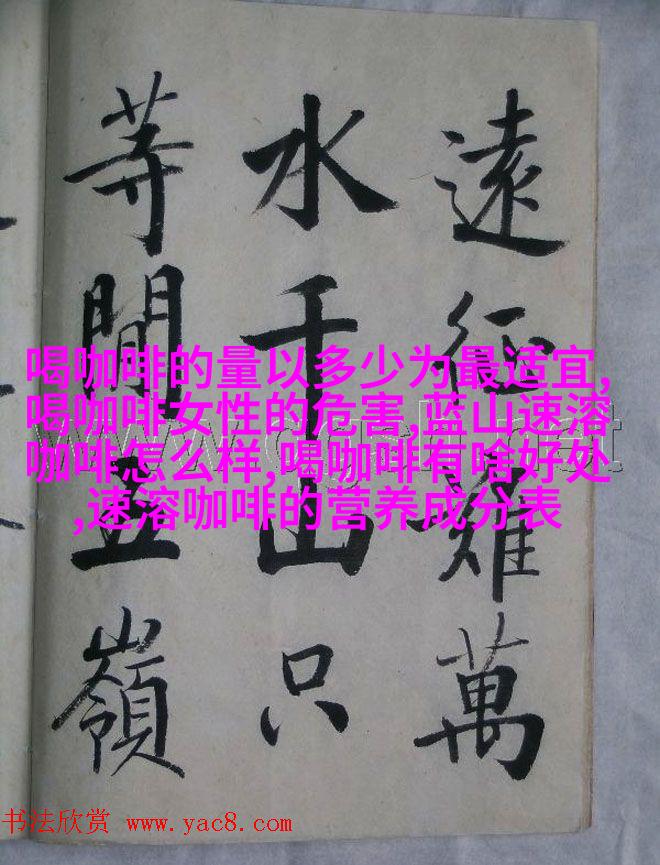 遠征難萬
水千山只
等閒五嶺
喝咖啡的量以多少为最适宜,
喝咖啡女性的危害,蓝山速溶
咖啡怎么样,喝咖啡有啥好处
,速溶咖啡的营养成分表
书法欣赏 www.yac8.com